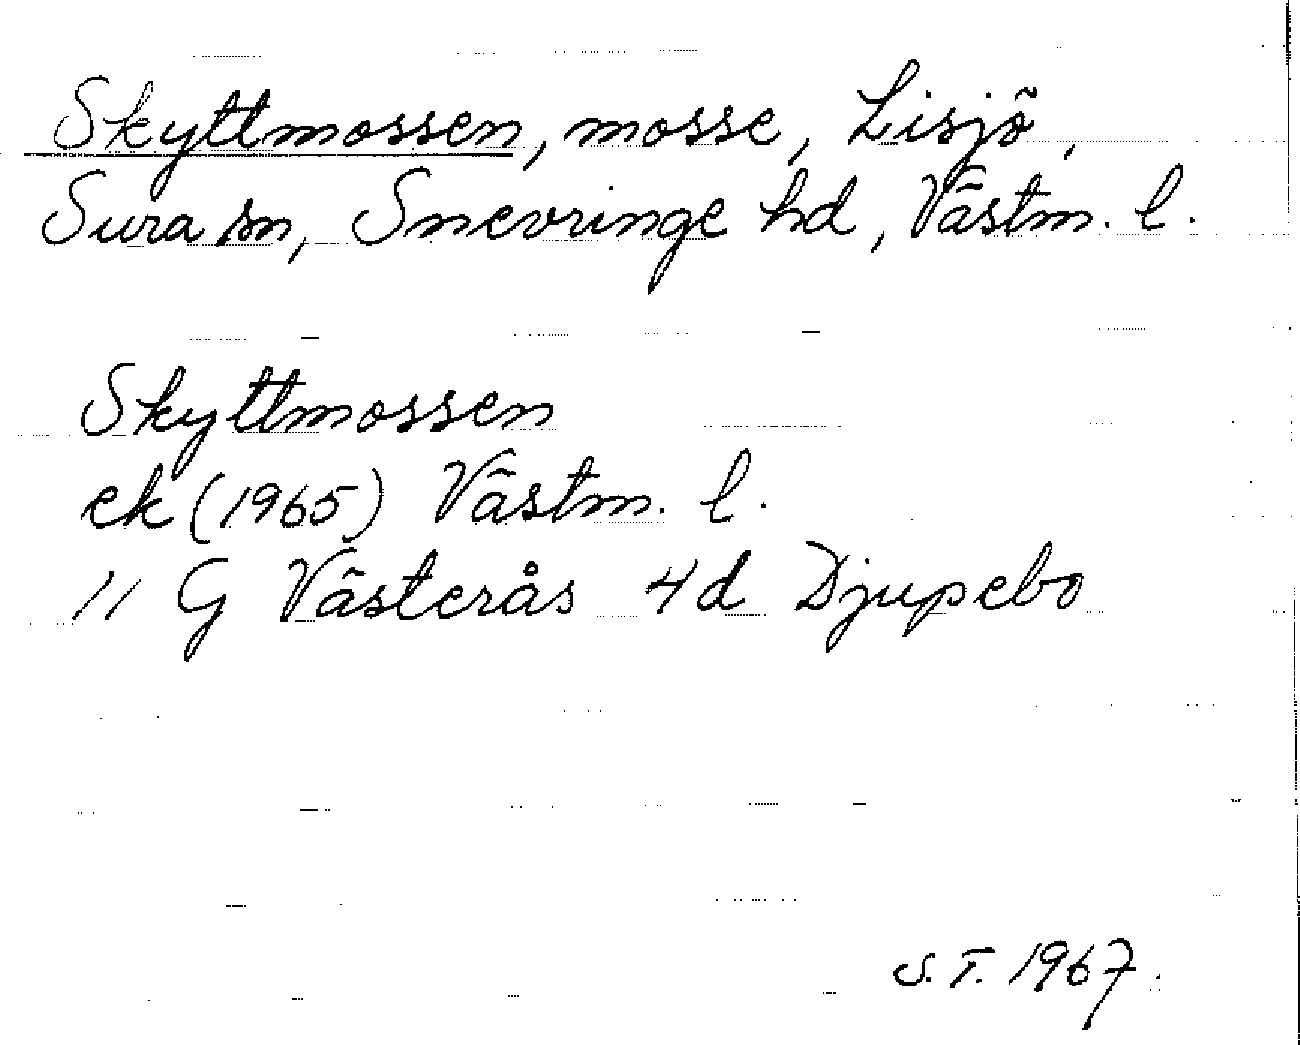 Skyttmossen, mosse, Lisjö,
Sura sn, Snevringe hd, Västm. l.
Skyttmossen
ek (1965) Västm. l.
11 G Västerås 4d Djupebo
S.T. 1967.